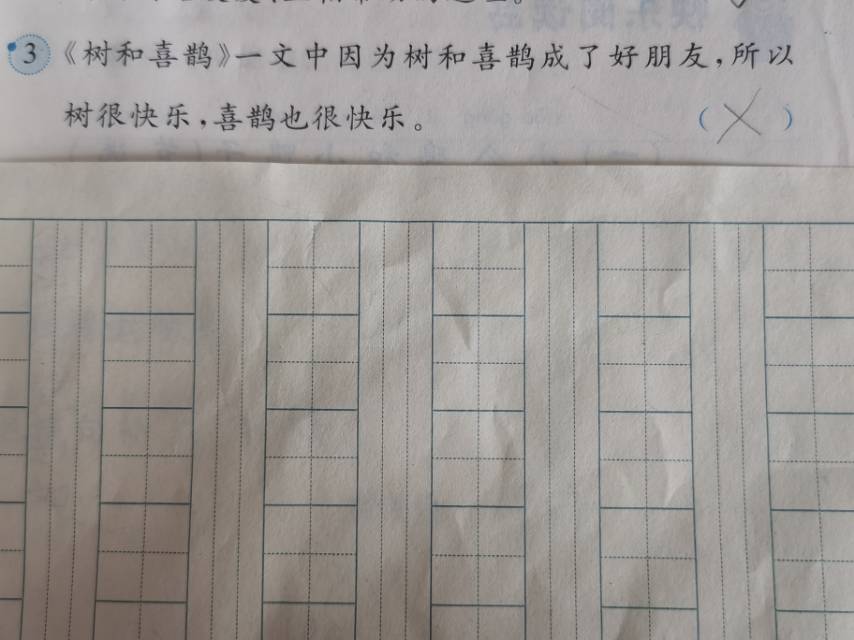 3 《树和喜鹊》一文中因为树和喜鹊成了好朋友,所以
树很快乐,喜鹊也很快乐。 (×)